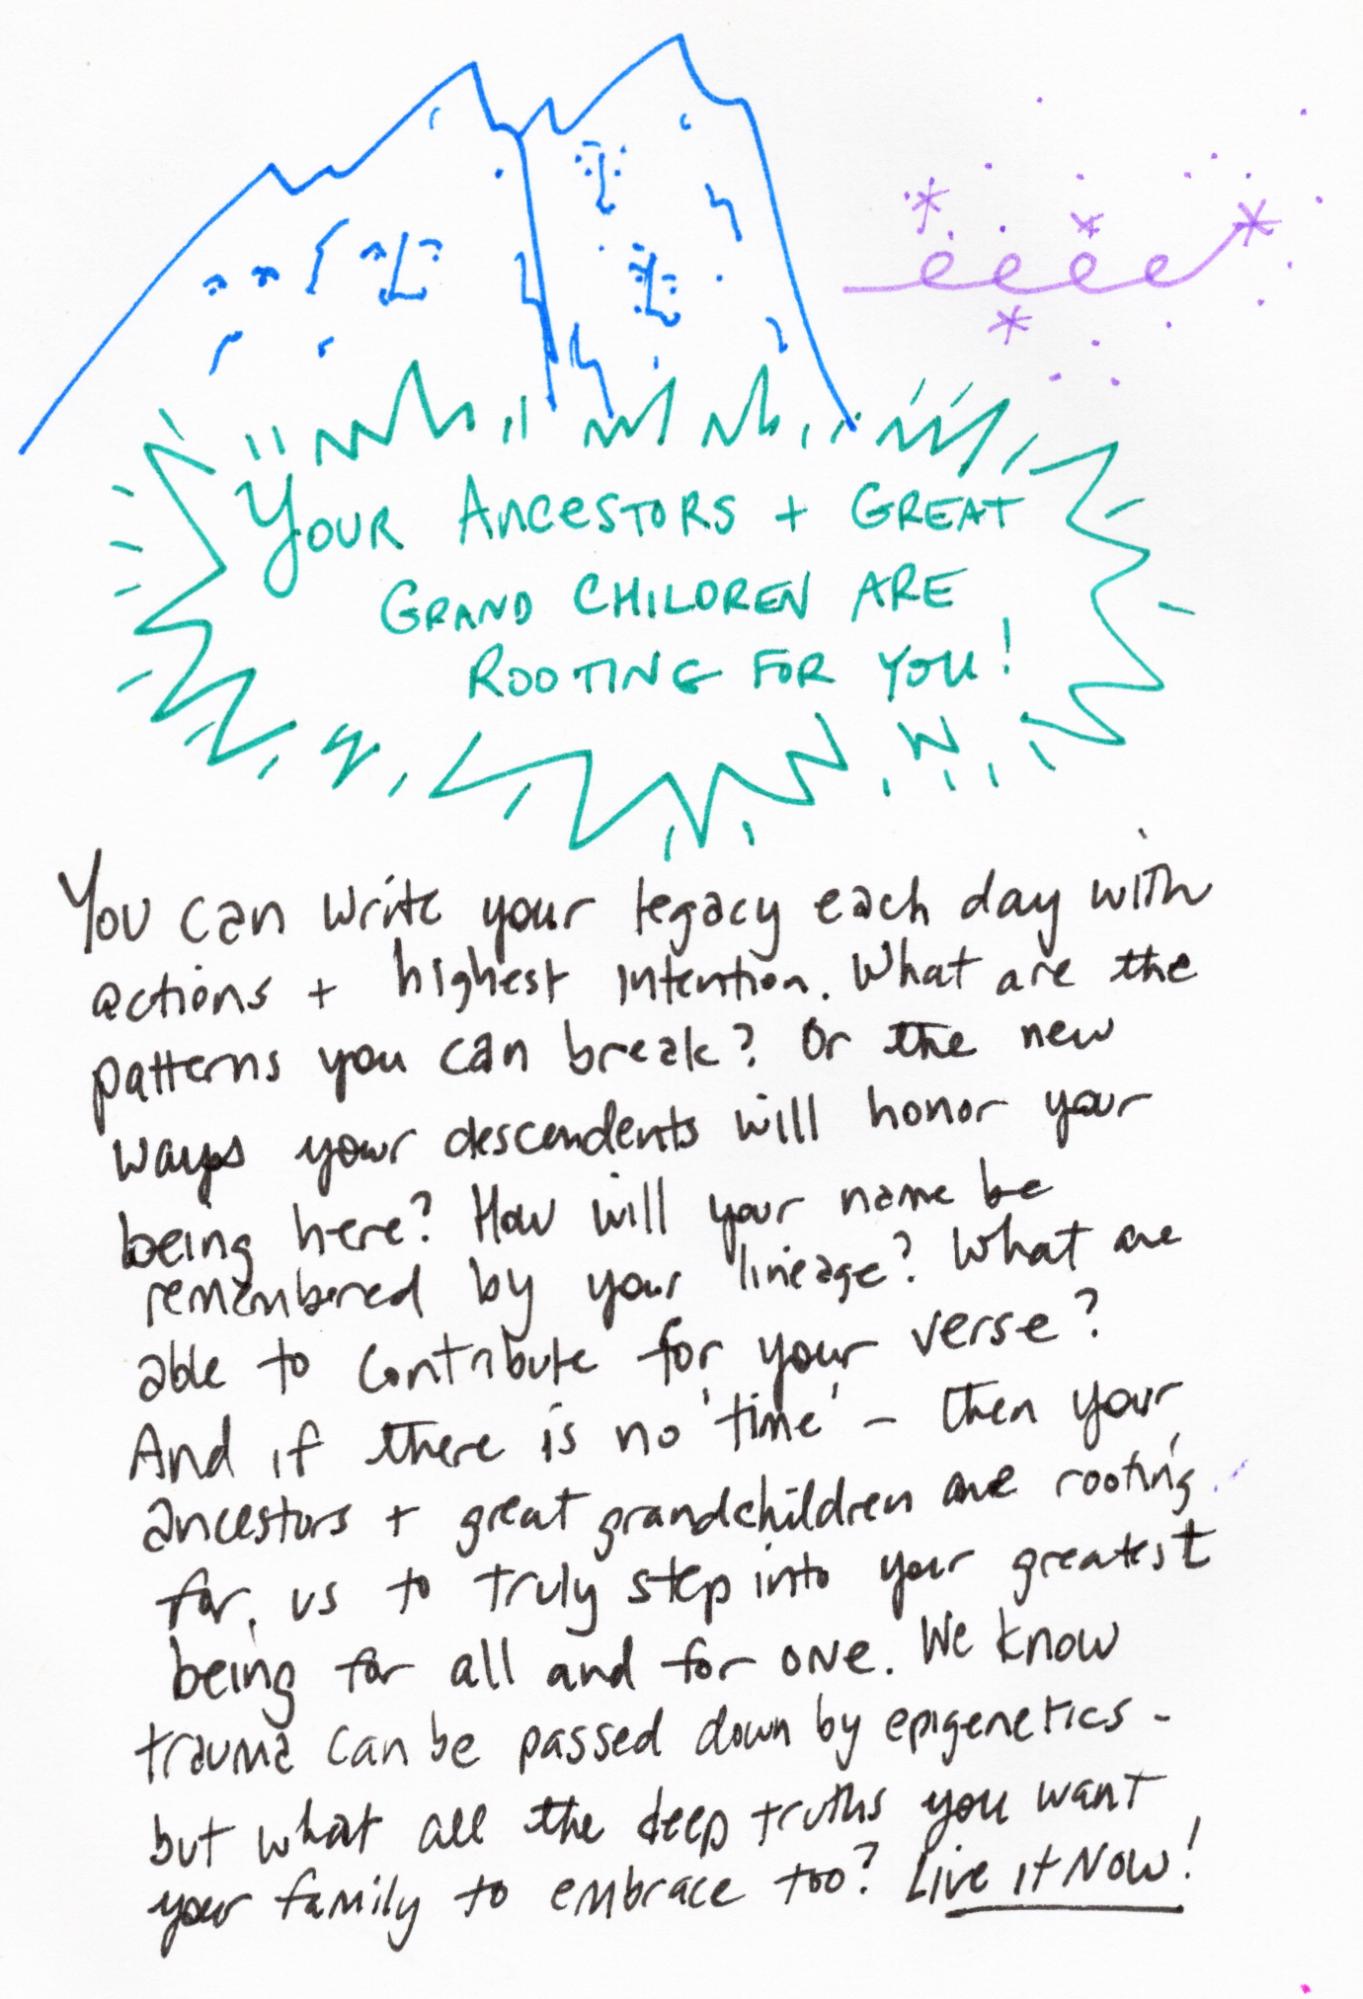 Your Ancestors + Great
Grand Children Are
Rooting For You!
You can write your legacy each day with
actions + highest intention. What are the
patterns you can break? Or the new
ways your descendents will honor your
being here? How will your name be
remembered by your lineage? What are
able to contribute for your verse?
And if there is no 'time' – then your
ancestors + great grandchildren are rooting
for us to truly step into your greatest
being for all and for one. We know
trauma can be passed down by epigenetics -
but what all the deep truths you want
your family to embrace too? Live it Now!